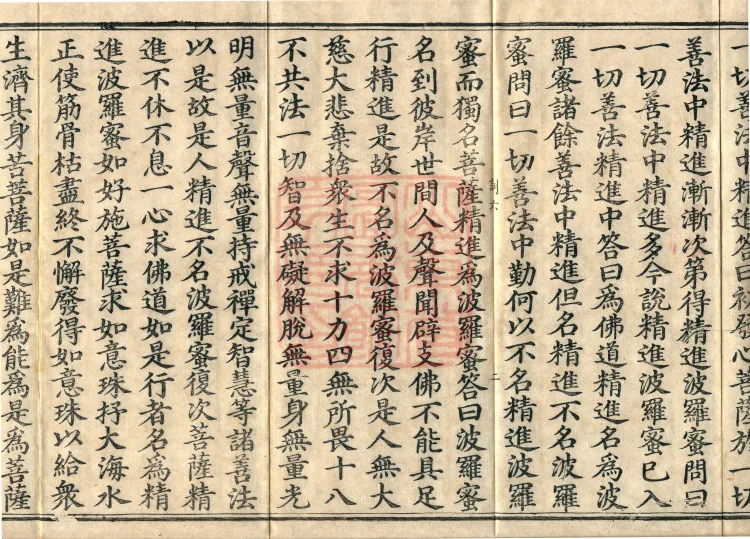 一切善法精進答曰初發心菩薩於一切
善法中精進漸漸次第得精進波羅蜜問曰
一切善法中精進多今說精進波羅蜜已入
一切善法精進中答曰爲佛道精進名爲波
羅蜜諸餘善法中精進但名精進不名波羅
蜜問曰一切善法中勤何以不名精進波羅
訓六 二
蜜而獨名菩薩精進爲波羅蜜答曰波羅蜜
名到彼岸世間人及聲聞辟支佛不能具足
行精進是故不名爲波羅蜜復次是人無大
慈大悲棄捨衆生不求十力四無所畏十八
不共法一切智及無礙解脫無量身無量光
明無量音聲無量持戒禪定智慧等諸善法
以是故是人精進不名波羅蜜復次菩薩精
進不休不息一心求佛道如是行者名爲精
進波羅蜜如好施菩薩求如意珠抒大海水
正使筋骨枯盡終不懈發得如意珠以給衆
生濟其身苦菩薩如是難爲能爲是爲菩薩